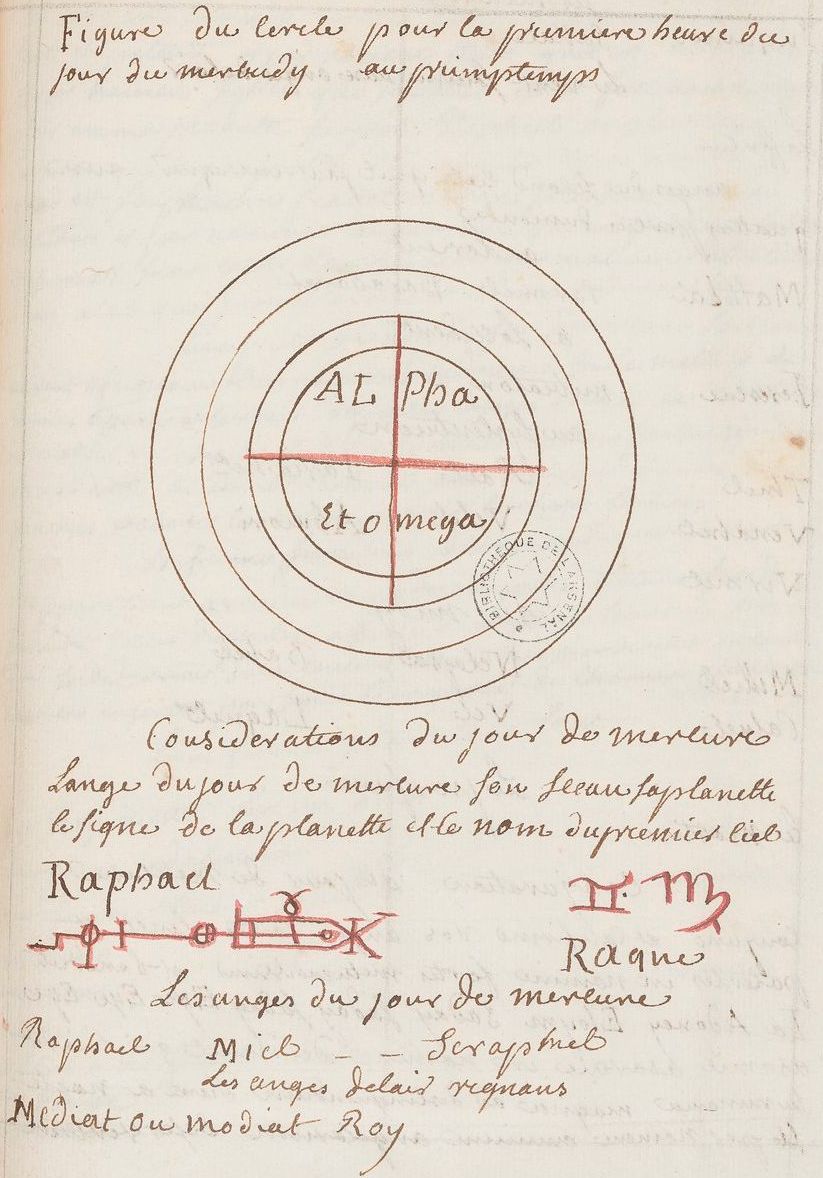 Figure du cercle pour la premiere heure du
jour du mercredy au primptemps
AL Pha
Et omega
BIBLIOTHEQUE DE L'ARSENAL
Considerations du jour de mercure
Lange du jour de mercure son sceau sa planette
le signe de la planette et le nom du premier ciel
Raphael
♊ ♍
Raque
Les anges du jour de mercure
Raphael Miel - - Seraphiel
Les anges de lair regnans
Mediat ou modiat Roy